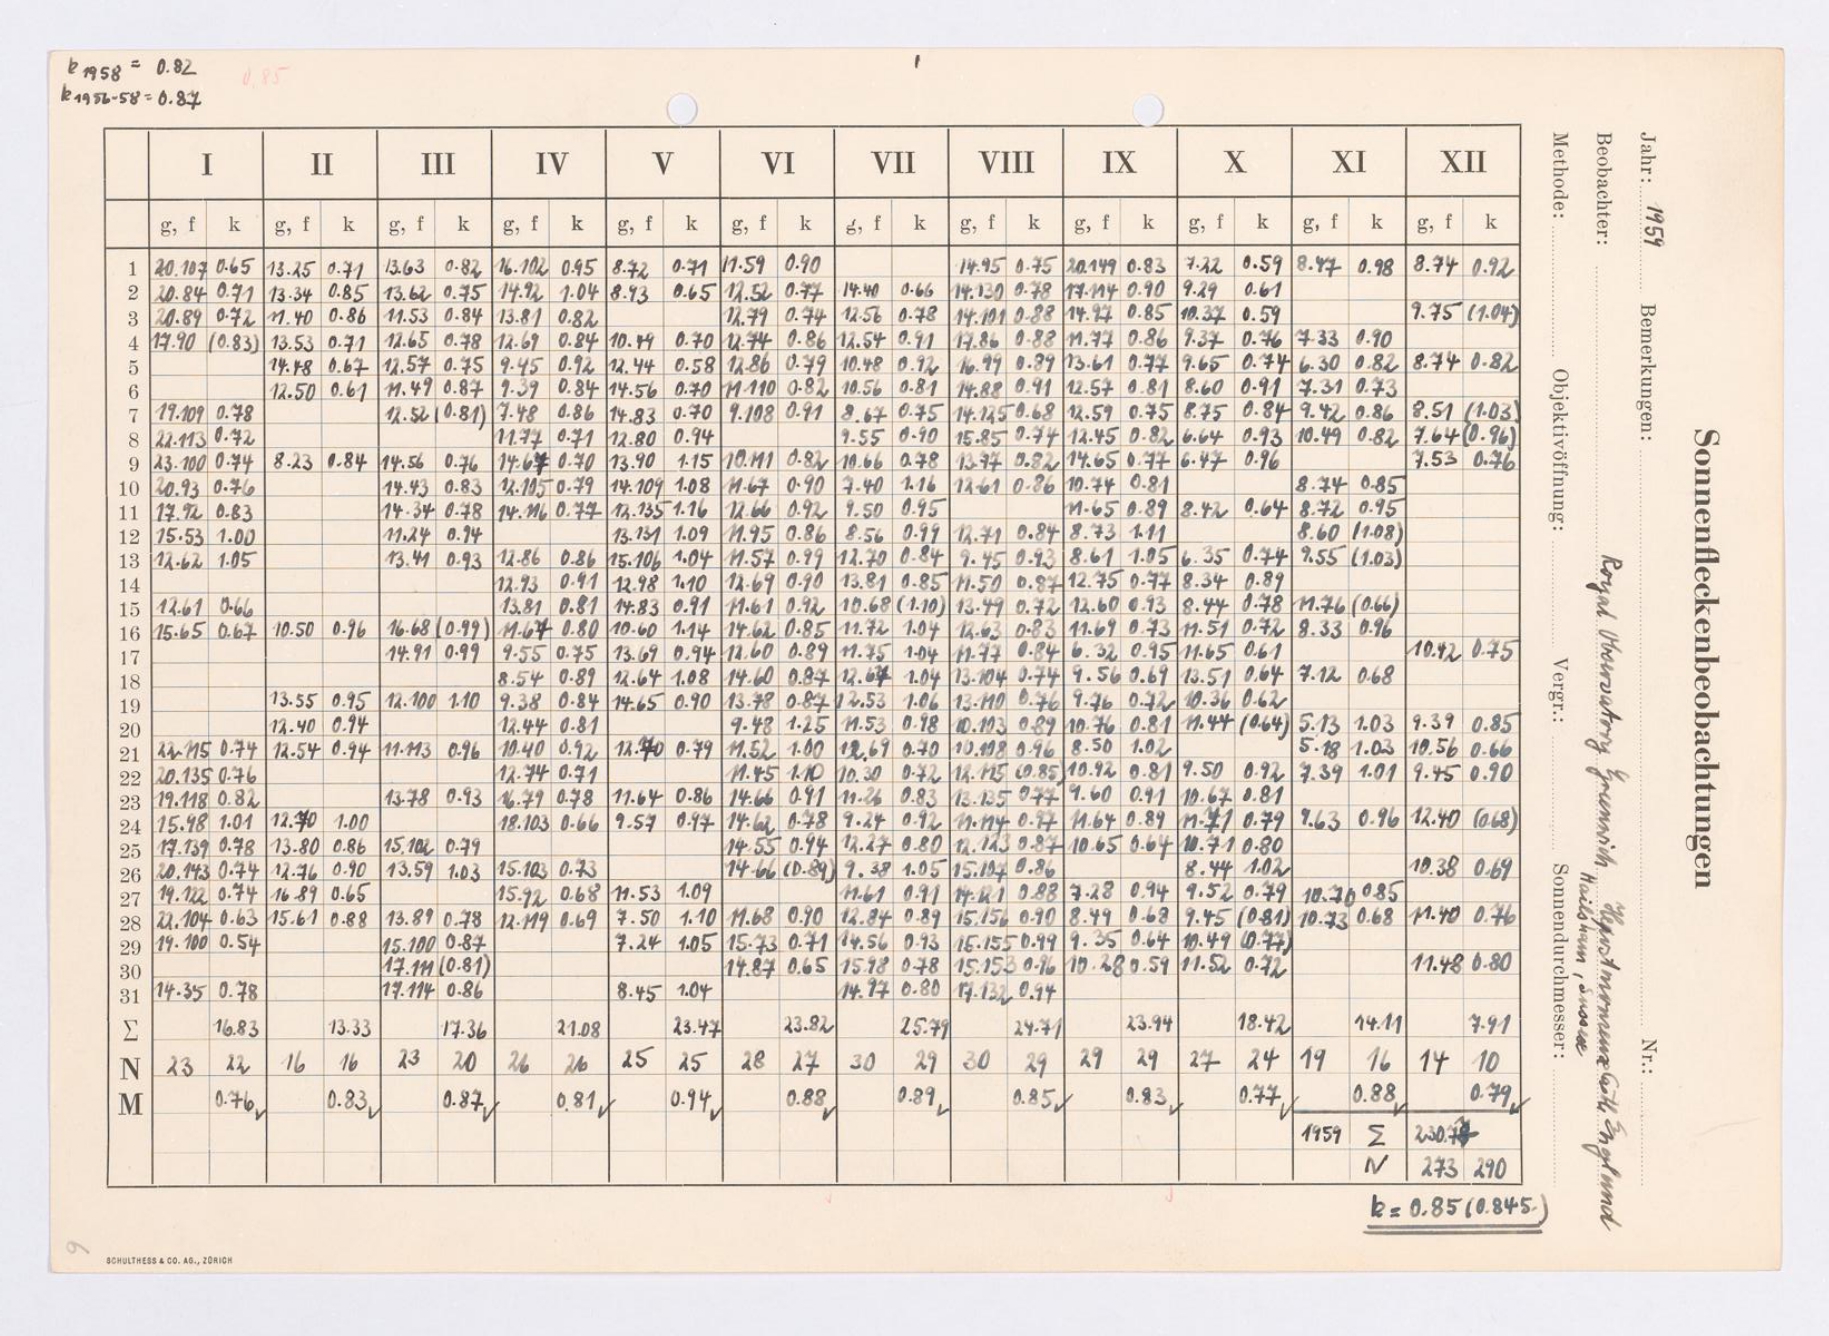 k 1958 = 0.82
0.85
k 1956-58 = 0.87
Sonnenfleckenbeobachtungen
Jahr: 1959 Bemerkungen: Nr.:
Beobachter: Royal Observatory Greenwich, Herstmonceux Castle England
Hailsham, Sussex
Methode: Objektivöffnung: Vergr.: Sonnendurchmesser:
I II III IV V VI VII VIII IX X XI XII
g, f k g, f k g, f k g, f k g, f k g, f k g, f k g, f k g, f k g, f k g, f k g, f k
1 20.107 0.65 13.25 0.71 13.63 0.82 16.102 0.95 8.72 0.71 11.59 0.90 14.95 0.75 20.149 0.83 7.22 0.59 8.47 0.98 8.74 0.92
2 20.84 0.71 13.34 0.85 13.62 0.75 14.92 1.04 8.93 0.65 12.52 0.77 14.40 0.66 14.130 0.78 17.114 0.90 9.29 0.61
3 20.89 0.72 11.40 0.86 11.53 0.84 13.81 0.82 12.79 0.74 12.56 0.78 14.101 0.88 14.97 0.85 10.37 0.59 9.75 (1.04)
4 17.90 (0.83) 13.53 0.71 12.65 0.78 12.69 0.84 10.49 0.70 12.74 0.86 12.54 0.91 17.86 0.88 11.77 0.86 9.37 0.76 7.33 0.90
5 14.48 0.67 12.57 0.75 9.45 0.92 12.44 0.58 12.86 0.79 10.48 0.92 16.99 0.89 13.61 0.77 9.65 0.74 6.30 0.82 8.74 0.82
6 12.50 0.61 11.49 0.87 9.39 0.84 14.56 0.70 11.110 0.82 10.56 0.81 14.88 0.91 12.57 0.81 8.60 0.91 7.31 0.73
7 19.109 0.78 12.52 (0.81) 7.48 0.86 14.83 0.70 9.108 0.91 8.67 0.75 14.125 0.68 12.59 0.75 8.75 0.84 9.42 0.86 8.51 (1.03)
8 22.113 0.72 11.77 0.71 12.80 0.94 9.55 0.90 15.85 0.74 12.45 0.82 6.64 0.93 10.49 0.82 7.64 (0.96)
9 23.100 0.74 8.23 0.84 14.56 0.76 14.67 0.70 13.90 1.15 10.111 0.82 10.66 0.78 13.97 0.82 14.65 0.77 6.47 0.96 7.53 0.76
10 20.93 0.76 14.43 0.83 12.105 0.79 14.109 1.08 11.67 0.90 7.40 1.16 12.61 0.86 10.74 0.81 8.74 0.85
11 17.92 0.83 14.34 0.78 14.116 0.77 12.135 1.16 12.66 0.92 9.50 0.95 11.65 0.89 8.42 0.64 8.72 0.95
12 15.53 1.00 11.24 0.94 13.131 1.09 11.95 0.86 8.56 0.99 12.71 0.84 8.73 1.11 8.60 (1.08)
13 12.62 1.05 13.41 0.93 12.86 0.86 15.106 1.04 11.57 0.99 12.70 0.84 9.45 0.93 8.61 1.05 6.35 0.74 9.55 (1.03)
14 12.93 0.91 12.98 1.10 12.69 0.90 13.81 0.85 11.50 0.87 12.75 0.77 8.34 0.89
15 12.61 0.66 13.81 0.81 14.83 0.91 11.61 0.92 10.68 (1.10) 13.49 0.72 12.60 0.93 8.44 0.78 11.76 (0.66)
16 15.65 0.67 10.50 0.96 16.68 (0.99) 11.67 0.80 10.60 1.14 14.62 0.85 11.72 1.04 12.63 0.83 11.69 0.73 11.51 0.72 8.33 0.96
17 14.91 0.99 9.55 0.75 13.69 0.94 12.60 0.89 11.75 1.04 11.77 0.84 6.32 0.95 11.65 0.61 10.42 0.75
18 8.54 0.89 12.64 1.08 14.60 0.87 12.67 1.04 13.104 0.74 9.56 0.69 13.51 0.64 7.12 0.68
19 13.55 0.95 12.100 1.10 9.38 0.84 14.65 0.90 13.78 0.87 12.53 1.06 13.110 0.76 9.76 0.72 10.36 0.62
20 12.40 0.94 12.44 0.81 9.48 1.25 11.53 0.98 10.103 0.89 10.76 0.81 11.44 (0.64) 5.13 1.03 9.39 0.85
21 22.115 0.74 12.54 0.94 11.113 0.96 10.40 0.92 12.70 0.79 11.52 1.00 12.69 0.70 10.118 0.96 8.50 1.02 5.18 1.03 10.56 0.66
22 20.135 0.76 12.74 0.71 11.45 1.10 10.30 0.72 12.115 (0.85) 10.92 0.81 9.50 0.92 7.39 1.01 9.45 0.90
23 19.118 0.82 13.78 0.93 16.79 0.78 11.64 0.86 14.66 0.91 11.26 0.83 13.135 0.77 9.60 0.91 10.67 0.81
24 15.98 1.01 12.70 1.00 18.103 0.66 9.57 0.97 14.62 0.78 9.24 0.92 11.114 0.97 11.64 0.89 11.71 0.79 9.63 0.96 12.40 (0.68)
25 17.139 0.78 13.80 0.86 15.102 0.79 14.55 0.94 12.27 0.80 12.123 0.87 10.65 0.64 10.71 0.80
26 20.143 0.74 12.76 0.90 13.59 1.03 15.103 0.73 14.66 (0.89) 9.38 1.05 15.107 0.86 8.44 1.02 10.38 0.69
27 19.122 0.74 16.89 0.65 15.92 0.68 11.53 1.09 11.61 0.91 14.121 0.88 7.28 0.94 9.52 0.79 10.70 0.85
28 22.104 0.63 15.61 0.88 13.89 0.78 12.119 0.69 7.50 1.10 11.68 0.90 12.84 0.89 15.156 0.90 8.49 0.68 9.45 (0.81) 10.73 0.68 11.40 0.76
29 19.100 0.54 15.100 0.87 7.24 1.05 15.73 0.71 14.56 0.93 15.155 0.99 9.35 0.64 10.49 (0.77)
30 17.111 (0.81) 14.87 0.65 15.98 0.78 15.153 0.96 10.28 0.59 11.52 0.72 11.48 0.80
31 14.35 0.78 17.114 0.86 8.45 1.04 14.97 0.80 17.132 0.94
Σ 16.83 13.33 17.36 21.08 23.47 23.82 25.79 24.71 23.94 18.42 14.11 7.91
N 23 22 16 16 23 20 26 26 25 25 28 27 30 29 30 29 29 29 27 24 19 16 14 10
M 0.76 0.83 0.87 0.81 0.94 0.88 0.89 0.85 0.83 0.77 0.88 0.79
1959 Σ 230.78
N 273 290
k = 0.85 (0.845.)
9
SCHULTHESS & CO. AG., ZÜRICH